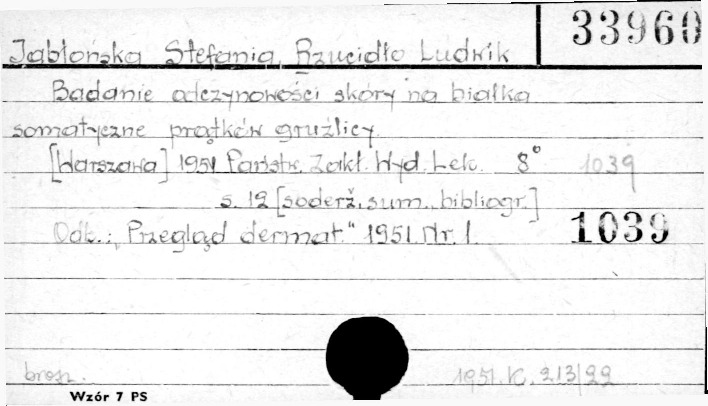 33960
Jabłońska Stefania, Rzucidło Ludwik
Badanie odczynowości skóry na białka
somatyczne prątków gruźlicy.
[Warszawa] 1951. Państw. Zakł. Wyd. Lek. 8° 1039
s. 12 [soderž., sum., bibliogr.]
Odb.: "Przegląd dermat." 1951. Nr. 1. 1039
brosz. 1951. K. 213/22
Wzór 7 PS